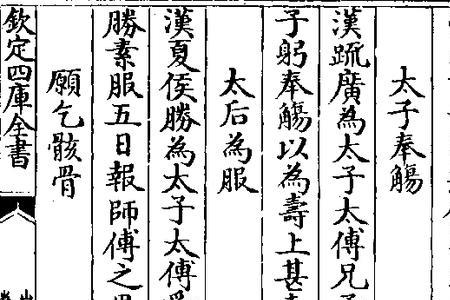 太子奉觴
漢䟽廣為太子太傅兄
子躬奉觴以為壽上甚
太后為服
漢夏侯勝為太子太傅
勝素服五日報師傅之
願乞骸骨
欽定四庫全書